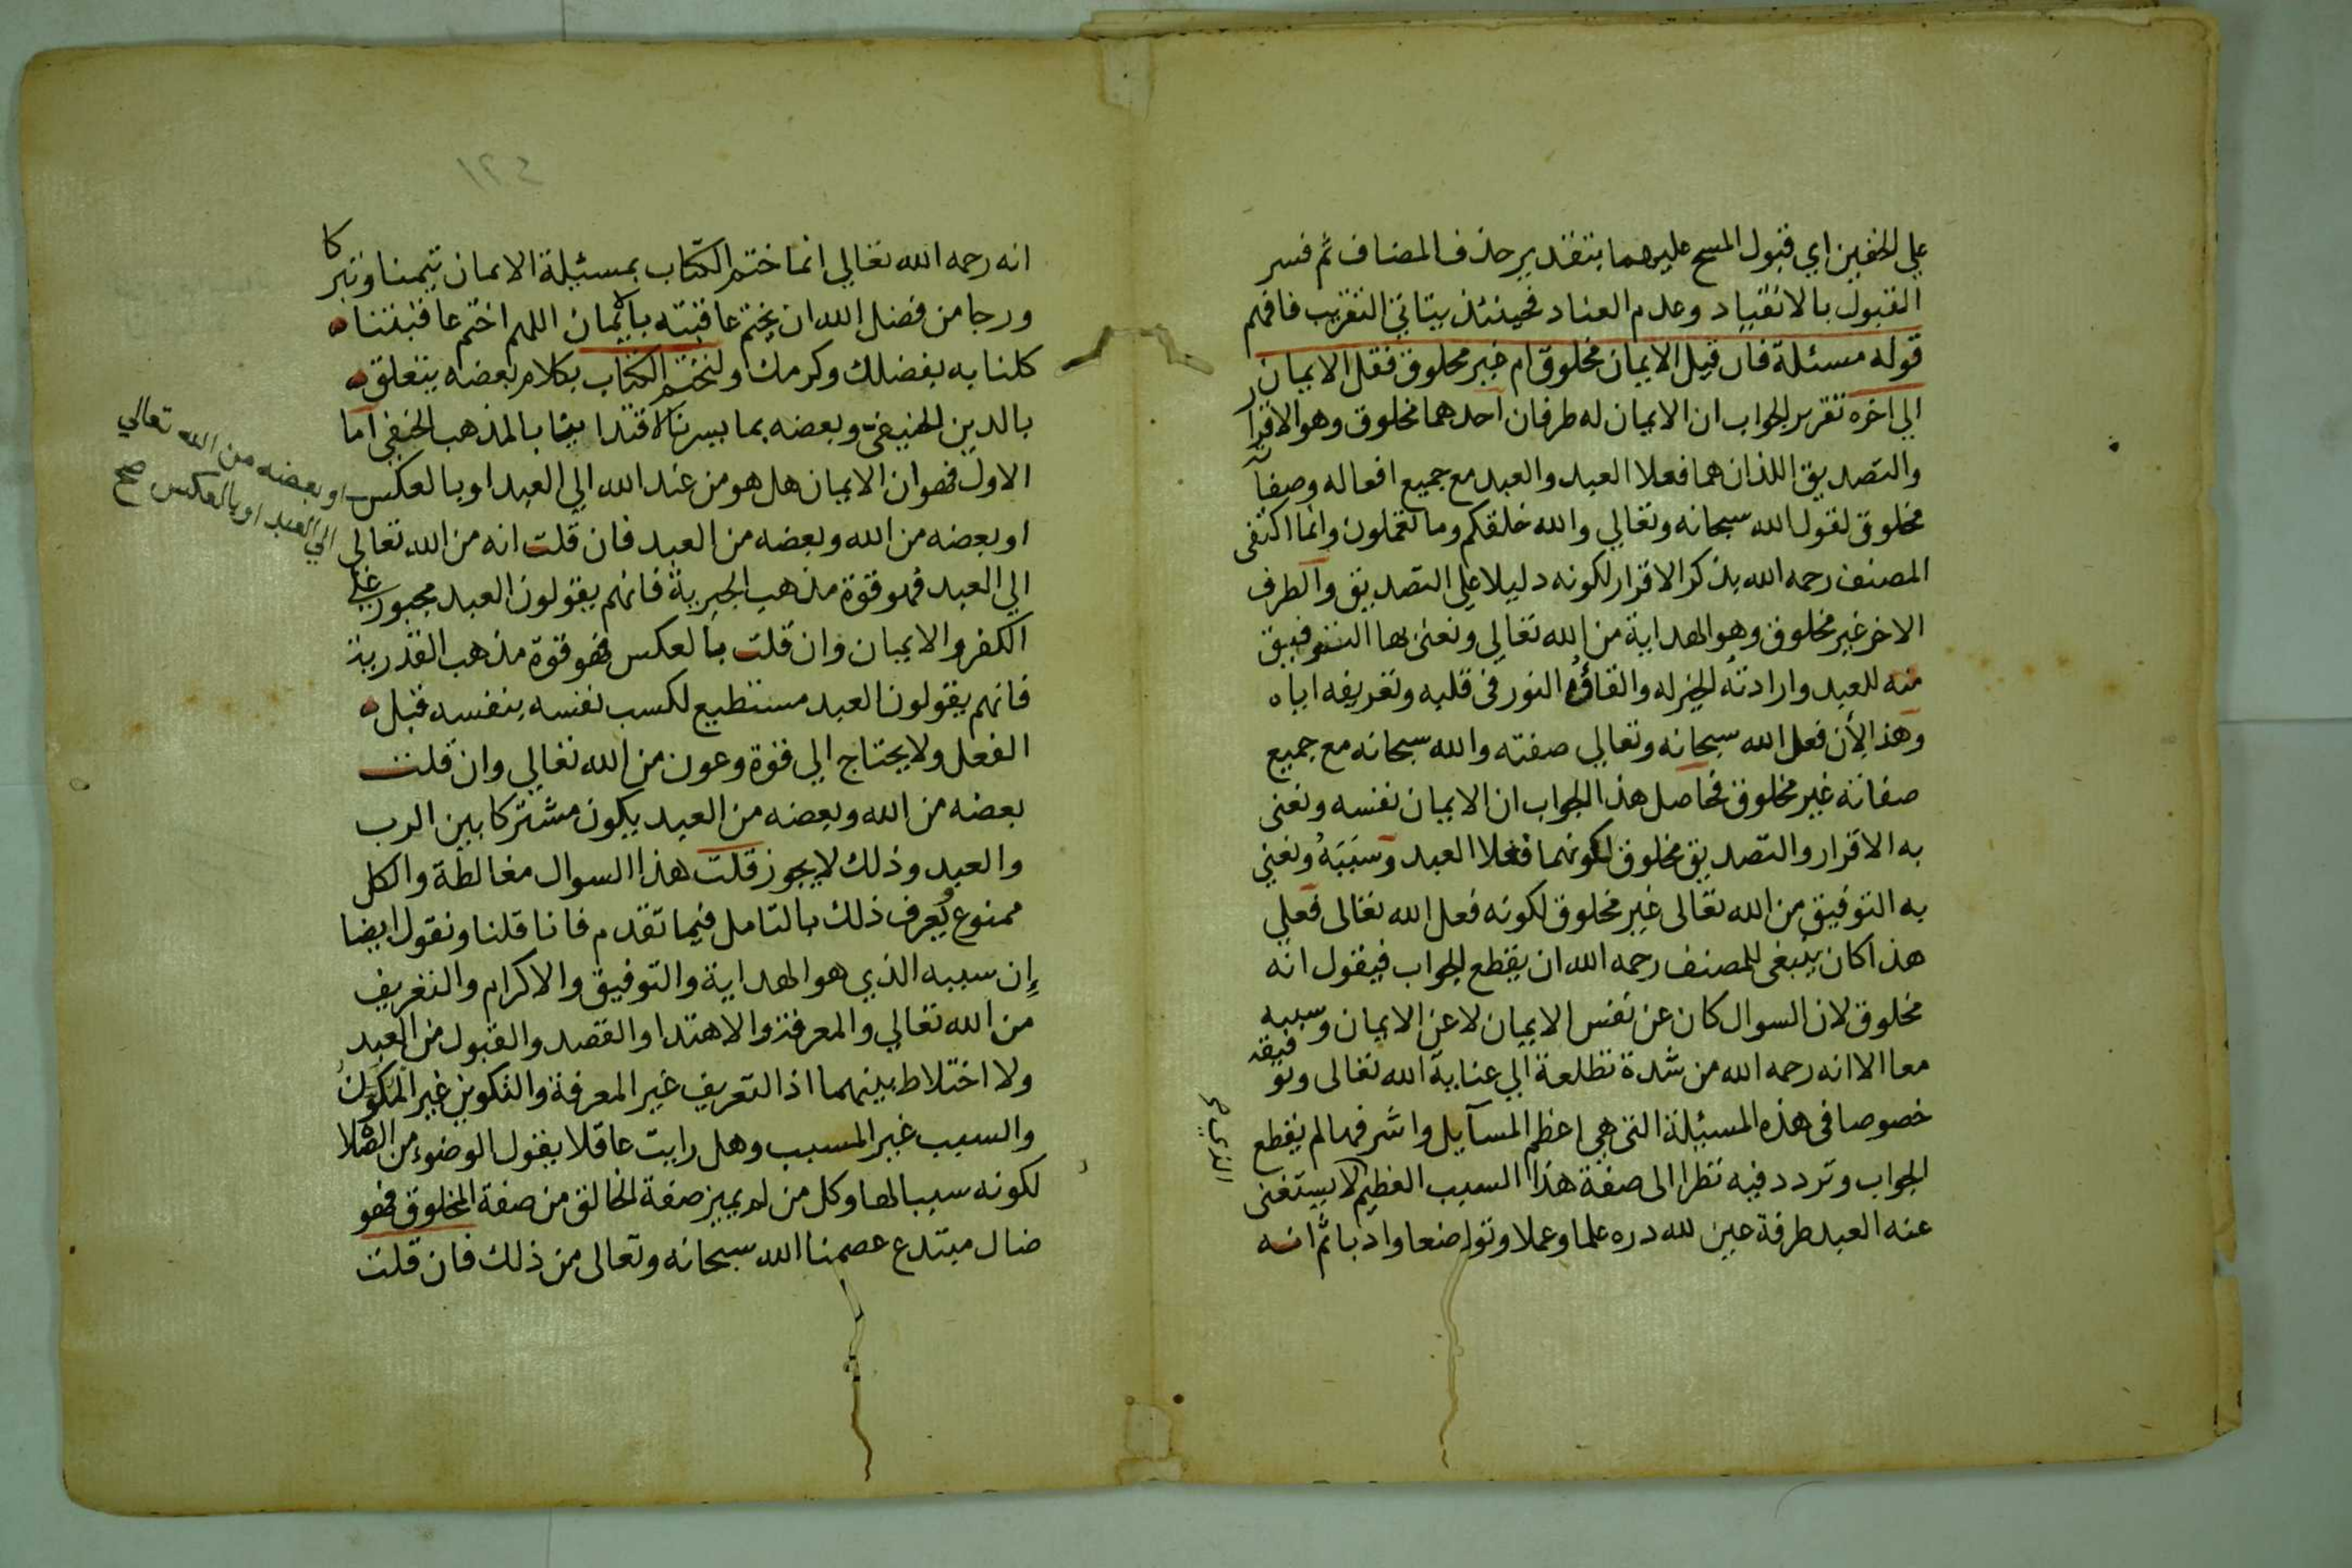 علي الخفين اي قبول المسح عليهما بتقدير حذف المضاف ثم فسر
القبول بالانقياد وعدم العناد فحينئذ يتاتي التقريب فافهم
قوله مسئلة فان قيل الايمان مخلوق ام غير مخلوق فقل الايمان
الي اخره تقرير الجواب ان الايمان له طرفان احدهما مخلوق وهو الاقرار
والتصديق اللذان هما فعلا العبد والعبد مع جميع افعاله وصفاته
مخلوق لقول الله سبحانه وتعالي والله خلقكم وما تعملون وانما اكتفى
المصنف رحمه الله بذكر الاقرار لكونه دليلا علي التصديق والطرف
الاخر غير مخلوق وهو الهداية من الله تعالي ونعنى بها التوفيق
منه للعبد وارادته الخير له والقاؤه النور في قلبه وتعريفه اياه
وهذا لأن فعل الله سبحانه وتعالي صفته والله سبحانه مع جميع
صفاته غير مخلوق فحاصل هذا الجواب ان الايمان نفسه ونعنى
به الاقرار والتصديق مخلوق لكونهما فعلا العبد وسببه ونعني
به التوفيق من الله تعالى غير مخلوق لكونه فعل الله تعالى فعلي
هذا كان ينبغى للمصنف رحمه الله ان يقطع الجواب فيقول انه
مخلوق لان السوال كان عن نفس الايمان لا عن الايمان وسببه
معا الا انه رحمه الله من شدة تطلعة الي عناية الله تعالى وتوفيقه
خصوصا في هذه المسيلة التي هي اعظم المسآيل واشرفها لم يقطع
الجواب وتردد فيه نظرا الى صفة هذا السبب العظيم لا يستغنى
عنه العبد طرفة عين لله دره علما وعملا وتواضعا وادبا ثم انه
١٢٤
انه رحمه الله تعالي انما ختم الكتاب بمسئلة الايمان تيمنا وتبركا
ورجا من فضل الله ان يختم عاقبته بالايمان اللهم اختم عاقبتنا
كلنا به بفضلك وكرمك ولنختم الكتاب بكلام بعضه يتعلق
بالدين الحنيفي وبعضه بما يسرنا الاقتدا بالمذهب الحنفي اما
الاول فهو ان الايمان هل هو من عند الله الي العبد او بالعكس
او بعضه من الله تعالي
الي العبد او بالعكس صح
او بعضه من الله وبعضه من العبد فان قلت انه من الله تعالى
الي العبد فهو قوة مذهب الجبرية فانهم يقولون العبد مجبور علي
الكفر والايمان وان قلت بالعكس فهو قوة مذهب القدرية
فانهم يقولون العبد مستطيع لكسب نفسه بنفسه قبل
الفعل ولا يحتاج الي قوة وعون من الله تعالي وان قلت
بعضه من الله وبعضه من العبد يكون مشتركا بين الرب
والعبد وذلك لا يجوز قلت هذا السوال مغالطة والكل
ممنوع يعرف ذلك بالتامل فيما تقدم فانا قلنا ونقول ايضا
إن سببه الذي هو الهداية والتوفيق والاكرام والتعريف
من الله تعالي والمعرفة والاهتدا والقصد والقبول من العبد
ولا اختلاط بينهما اذ التعريف غير المعرفة والتكوين غير المكون
والسبب غير المسبب وهل رايت عاقلا يقول الوضوء من الصلاة
لكونه سببا لها وكل من لم يميز صفة الخالق من صفة المخلوق فهو
ضال مبتدع عصمنا الله سبحانه وتعالى من ذلك فان قلت